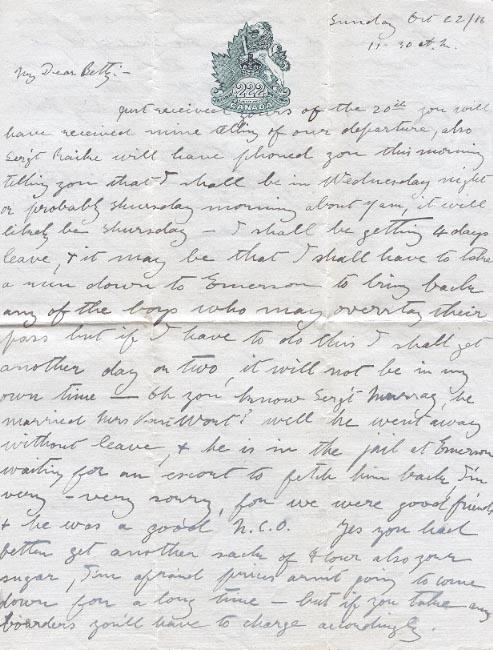 Sunday Oct 22/16
11.30 A.M.
My Dear Betty:-
222
CANADA
Just received yours of the 20th you will
have received mine telling of our departure, also
Serg't will have phoned you this morning
telling you that I shall be in Wednesday night
or probably Thursday morning about 7am, it will
likely be Thursday – I shall be getting 4 days
leave, & it may be that I shall have to take
a run down to Emerson to bring back
any of the boys who may overstay their
pass but if I have to do this I shall get
another day or two, it will not be in my
own time – Oh you know Serg't Murray, he
married Miss Wort? well he went away
without leave, & he is in the jail at Emerson
waiting for an escort to fetch him back I'm
very – very sorry, for we were good friends
& he was a good N.C.O. Yes you had
better get another sack of flour also your
sugar, I'm afraid prices arn't going to come
down for a long time – but if you take any
boarders you'll have to charge accordingly.